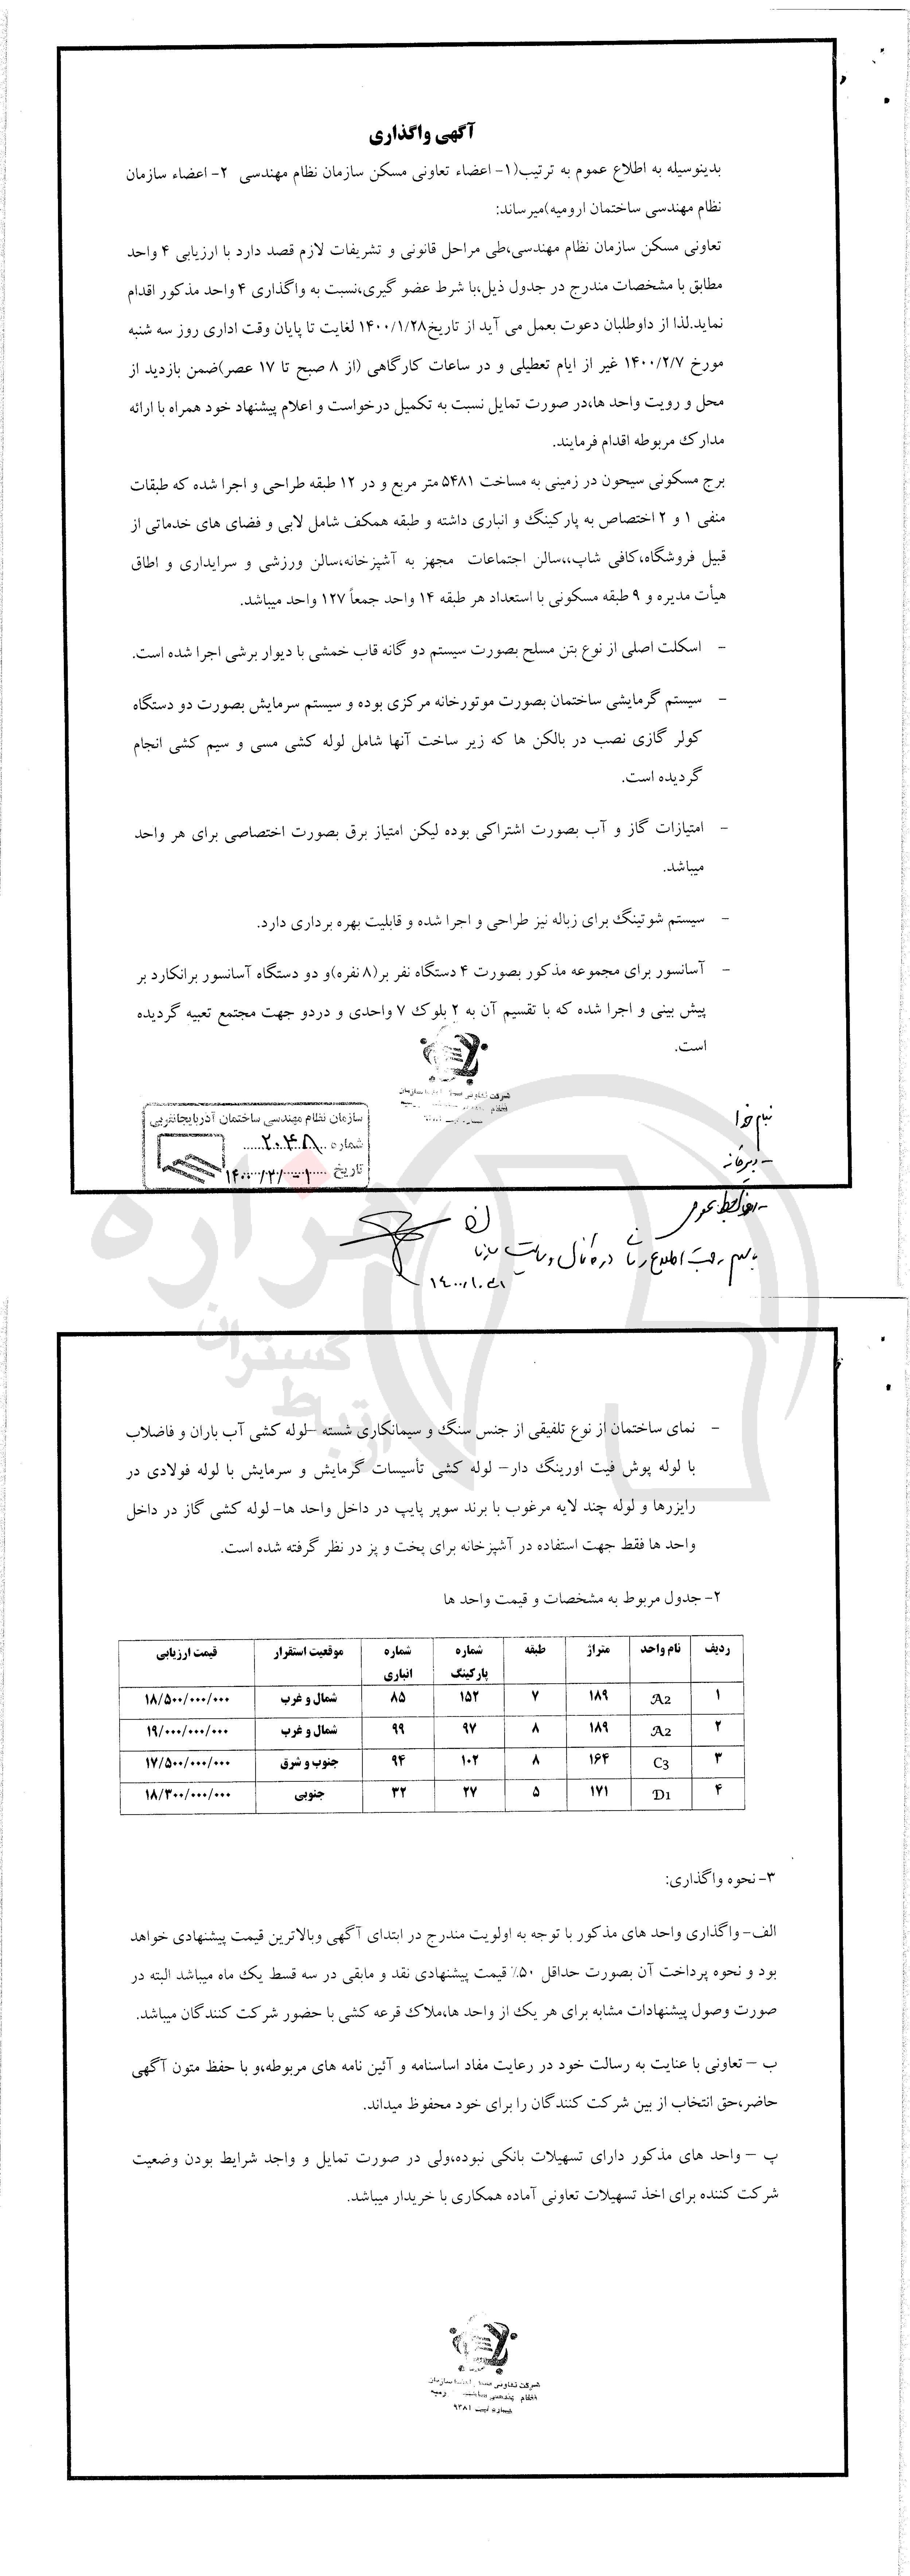 آگهی واگذاری
بدینوسیله به اطلاع عموم به ترتیب(۱- اعضاء تعاونی مسکن سازمان نظام مهندسی ۲- اعضاء سازمان
نظام مهندسی ساختمان ارومیه)میرساند:
تعاونی مسکن سازمان نظام مهندسی،طی مراحل قانونی و تشریفات لازم قصد دارد با ارزیابی ۴ واحد
مطابق با مشخصات مندرج در جدول ذیل،با شرط عضو گیری،نسبت به واگذاری ۴ واحد مذکور اقدام
نماید.لذا از داوطلبان دعوت بعمل می آید از تاریخ۱۴۰۰/۱/۲۸ لغایت تا پایان وقت اداری روز سه شنبه
مورخ ۱۴۰۰/۲/۷ غیر از ایام تعطیلی و در ساعات کارگاهی (از ۸ صبح تا ۱۷ عصر)ضمن بازدید از
محل و رویت واحد ها،در صورت تمایل نسبت به تکمیل درخواست و اعلام پیشنهاد خود همراه با ارائه
مدارک مربوطه اقدام فرمایند.
برج مسکونی سیحون در زمینی به مساحت ۵۴۸۱ متر مربع و در ۱۲ طبقه طراحی و اجرا شده که طبقات
منفی ۱ و ۲ اختصاص به پارکینگ و انباری داشته و طبقه همکف شامل لابی و فضای های خدماتی از
قبیل فروشگاه،کافی شاپ،،سالن اجتماعات مجهز به آشپزخانه،سالن ورزشی و سرایداری و اطاق
هیأت مدیره و ۹ طبقه مسکونی با استعداد هر طبقه ۱۴ واحد جمعاً ۱۲۷ واحد میباشد.
- اسکلت اصلی از نوع بتن مسلح بصورت سیستم دو گانه قاب خمشی با دیوار برشی اجرا شده است.
- سیستم گرمایشی ساختمان بصورت موتورخانه مرکزی بوده و سیستم سرمایش بصورت دو دستگاه
کولر گازی نصب در بالکن ها که زیر ساخت آنها شامل لوله کشی مسی و سیم کشی انجام
گردیده است.
- امتیازات گاز و آب بصورت اشتراکی بوده لیکن امتیاز برق بصورت اختصاصی برای هر واحد
میباشد.
- سیستم شوتینگ برای زباله نیز طراحی و اجرا شده و قابلیت بهره برداری دارد.
- آسانسور برای مجموعه مذکور بصورت ۴ دستگاه نفر بر(۸ نفره)و دو دستگاه آسانسور برانکارد بر
پیش بینی و اجرا شده که با تقسیم آن به ۲ بلوک ۷ واحدی و دردو جهت مجتمع تعبیه گردیده
است.
شرکت تعاونی سازمان
سازمان نظام مهندسی ساختمان آذربایجانغربی
شماره ۲۰۴۸
تاریخ
بنام خدا
- دبیرخانه
فراره
گستران
ارتباط
- نمای ساختمان از نوع تلفیقی از جنس سنگ و سیمانکاری شسته –لوله کشی آب باران و فاضلاب
با لوله پوش فیت اورینگ دار– لوله کشی تأسیسات گرمایش و سرمایش با لوله فولادی در
رایزرها و لوله چند لایه مرغوب با برند سوپر پایپ در داخل واحد ها- لوله کشی گاز در داخل
واحد ها فقط جهت استفاده در آشپزخانه برای پخت و پز در نظر گرفته شده است.
۲- جدول مربوط به مشخصات و قیمت واحد ها
ردیف نام واحد متراژ طبقه شماره پارکینگ شماره انباری موقعیت استقرار قیمت ارزیابی
۱ A2 ۱۸۹ ۷ ۱۵۲ ۸۵ شمال و غرب ۱۸/۵۰۰/۰۰۰/۰۰۰
۲ A2 ۱۸۹ ۸ ۹۷ ۹۹ شمال و غرب ۱۹/۰۰۰/۰۰۰/۰۰۰
۳ C3 ۱۶۴ ۸ ۱۰۲ ۹۴ جنوب و شرق ۱۷/۵۰۰/۰۰۰/۰۰۰
۴ D1 ۱۷۱ ۵ ۲۷ ۳۲ جنوبی ۱۸/۳۰۰/۰۰۰/۰۰۰
۳- نحوه واگذاری:
الف- واگذاری واحد های مذکور با توجه به اولویت مندرج در ابتدای آگهی وبالاترین قیمت پیشنهادی خواهد
بود و نحوه پرداخت آن بصورت حداقل ۵۰٪ قیمت پیشنهادی نقد و مابقی در سه قسط یک ماه میباشد البته در
صورت وصول پیشنهادات مشابه برای هر یک از واحد ها،ملاک قرعه کشی با حضور شرکت کنندگان میباشد.
ب – تعاونی با عنایت به رسالت خود در رعایت مفاد اساسنامه و آئین نامه های مربوطه،و با حفظ متون آگهی
حاضر،حق انتخاب از بین شرکت کنندگان را برای خود محفوظ میداند.
پ – واحد های مذکور دارای تسهیلات بانکی نبوده،ولی در صورت تمایل و واجد شرایط بودن وضعیت
شرکت کننده برای اخذ تسهیلات تعاونی آماده همکاری با خریدار میباشد.
شرکت تعاونی سازمان
شماره ثبت ۹۳۸۱